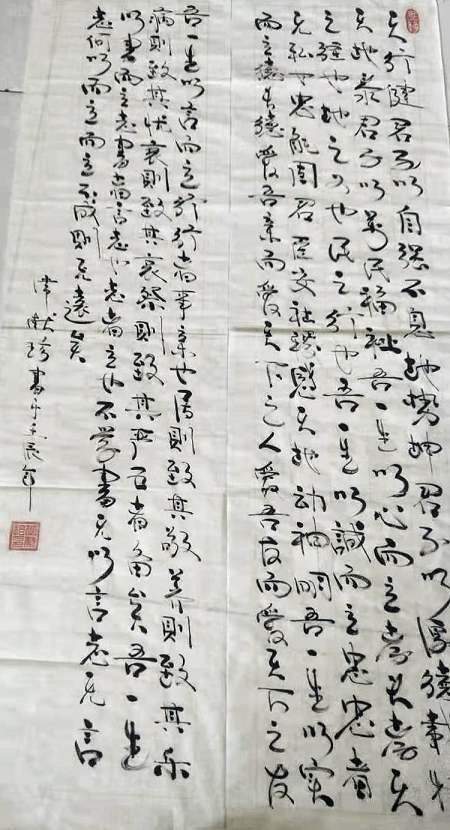 天行健君子以自强不息地势坤君子以厚德载物
天地泰君子以民福祉吾一生以心而立孝夫孝天
之经也地之义也民之行也吾一生以诚而立忠忠者
无私也忠能固君臣安社稷感天地动神明吾一生以实
而立德德爱吾亲而爱天下之人爱吾友而爱天下之友
吾一生以言而立行行者事亲也居则致其敬养则致其乐
病则致其忧丧则致其哀祭则致其严五者备矣吾一生
以书而立志书者言志也志者立也不学书无以言志无言
志何以而立而立不成则无远矣
常献珍书于壬辰年